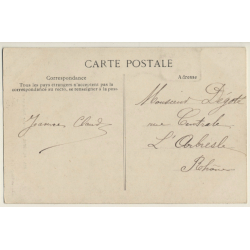 CARTE POSTALE
Correspondance
Tous les pays étrangers n'acceptent pas la
correspondance au recto, se renseigner à la poste.
Adresse
Monsieur Dégotte
rue Centrale
L'Arbresle
Rhône